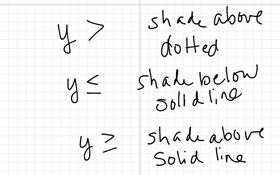 y > shade above
dotted
y ≤ shade below
solid line
y ≥ shade above
Solid line